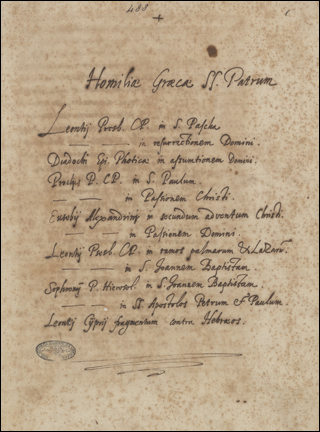 488
+
Homiliæ Græcæ SS. Patrum
Leontij Presb. CP. in S. Pascha
— — in resurrectionem Domini.
Diadochi Epi. Photicæ in assuntionem Domini.
Proclus P. CP. in S. Paulum
— — in Passionem Christi.
Eusebij Alexandrini in secundum adventum Christi.
— — in Passionem Domini.
Leontij Presb. CP. in ramos palmarum & Lazarū
— — in S. Joannem Baptistam
Sophronij P. Hierosol. in S. Joannem Baptistam
in SS Apostolos Petrum & Paulum.
Leontij Cyprij fragmentum contra Hebræos.